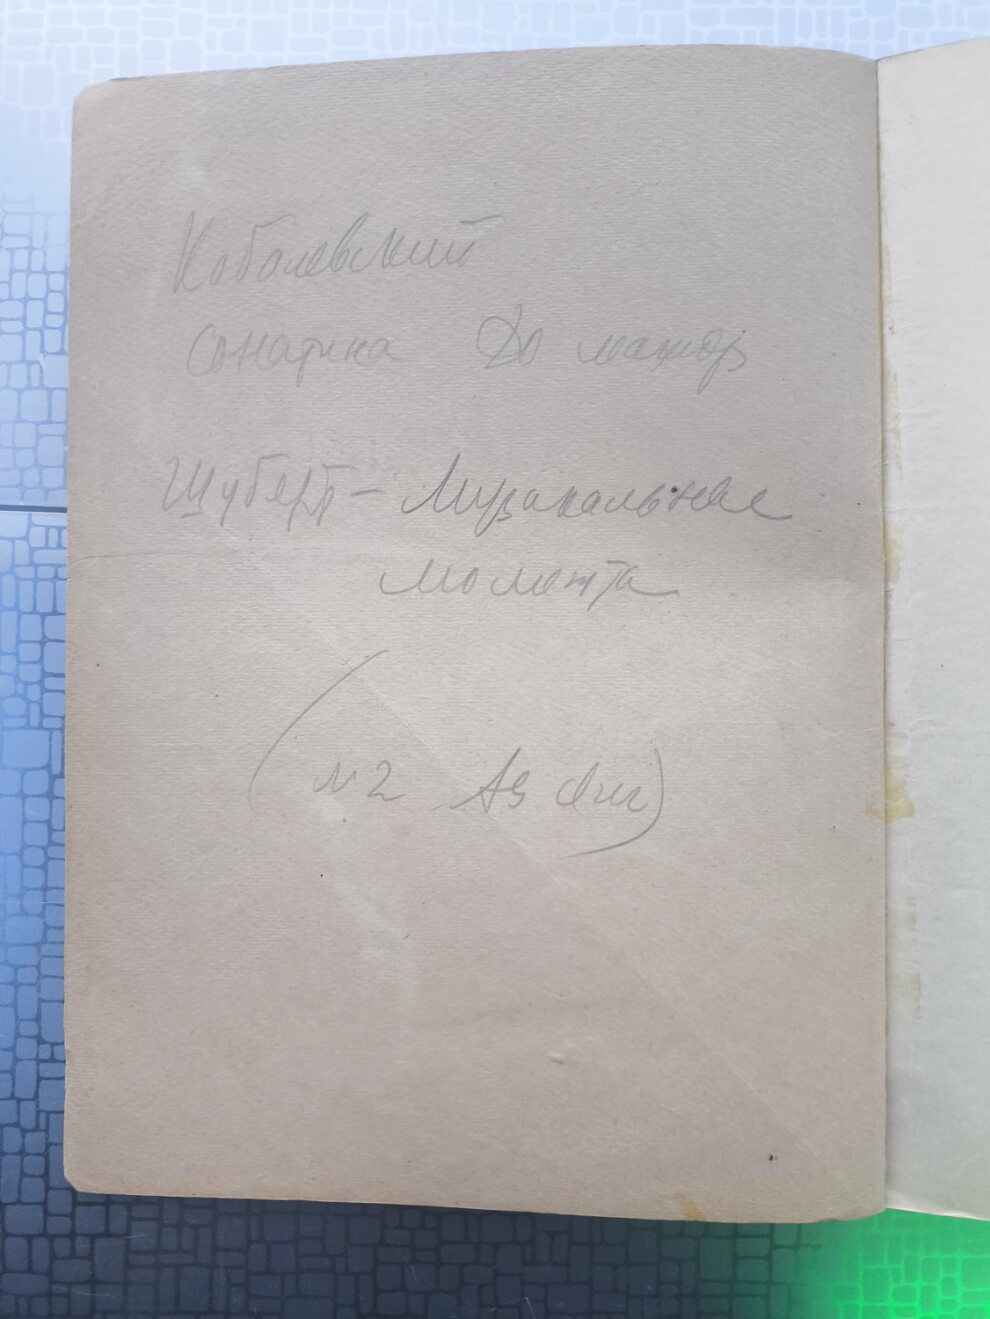 Кабалевский
Сонатина До мажор
Шуберт – Музыкальные
моменты
(№2 As dur)